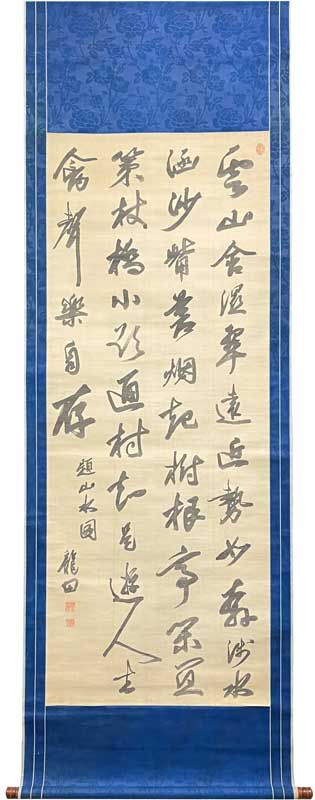 雲山含濕翠遠近勢如奔淺水
涵沙觜蒼烟起樹根亭閑宜
策杖橋小欲通村知是遊人去
禽聲樂自存
題山水図
龍